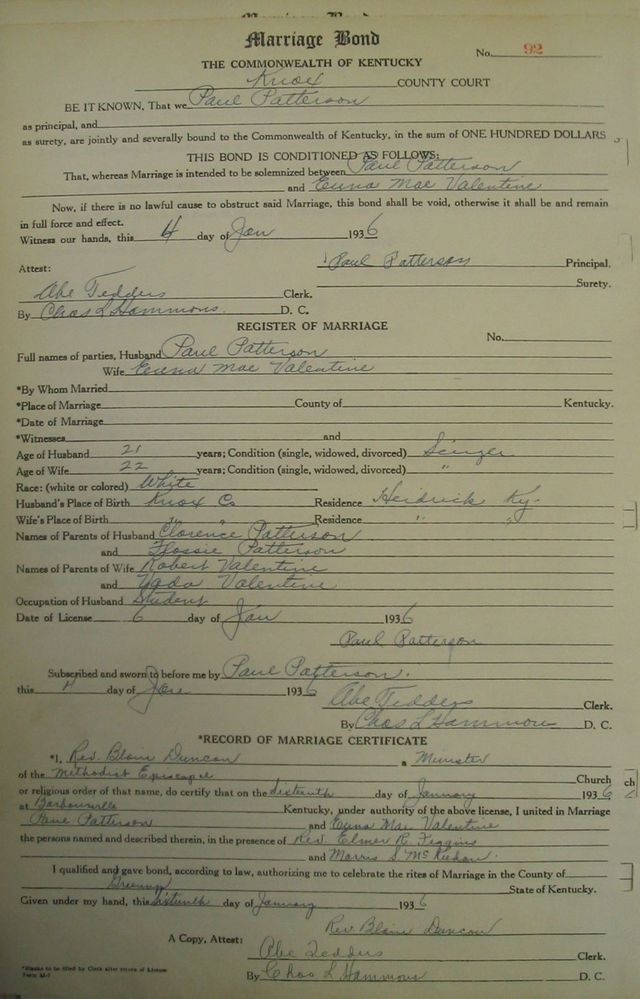 Marriage Bond
No. 92
THE COMMONWEALTH OF KENTUCKY
Knox COUNTY COURT
BE IT KNOWN, That we Paul Patterson
as principal, and
as surety, are jointly and severally bound to the Commonwealth of Kentucky, in the sum of ONE HUNDRED DOLLARS
THIS BOND IS CONDITIONED AS FOLLOWS:
That, whereas Marriage is intended to be solemnized between Paul Patterson
and Euna Mae Valentine
Now, if there is no lawful cause to obstruct said Marriage, this bond shall be void, otherwise it shall be and remain
in full force and effect.
Witness our hands, this 4 day of Jan 1936
Paul Patterson Principal.
Attest:
Surety.
Abe Tedders Clerk.
By Chas L Hammons D. C.
REGISTER OF MARRIAGE
No.
Full names of parties, Husband Paul Patterson
Wife Euna Mae Valentine
*By Whom Married
*Place of Marriage County of Kentucky.
*Date of Marriage
*Witnesses and
Age of Husband 21 years; Condition (single, widowed, divorced)
Age of Wife 22 years; Condition (single, widowed, divorced) "
Race: (white or colored) White
Husband's Place of Birth Knox Co Residence Heidrick Ky.
Wife's Place of Birth " " Residence " "
Names of Parents of Husband Clorence Patterson
and Flossie Patterson
Names of Parents of Wife Robert Valentine
and Valentine
Occupation of Husband Student
Date of License 6 day of Jan 1936
Paul Patterson
Subscribed and sworn to before me by Paul Patterson.
this day of Jan 1936
Abe Tedders Clerk.
By Chas L Hammons D. C.
*RECORD OF MARRIAGE CERTIFICATE
*I, Rev. Blain Duncan a Minister
of the Methodist Episcapel Church
or religious order of that name, do certify that on the sixteenth day of January 1936
at Barbourville Kentucky, under authority of the above license, I united in Marriage
Paul Patterson and Euna Mae Valentine
the persons named and described therein, in the presence of Rev. Elmer R. Figgins
and Morris S.
I qualified and gave bond, according to law, authorizing me to celebrate the rites of Marriage in the County of
Greenup State of Kentucky.
Given under my hand, this sixteenth day of January 1936
Rev. Blain Duncan
A Copy, Attest:
Abe Tedders Clerk.
By Chas L Hammons D. C.
*Blanks to be filled by Clerk after return of License
ch